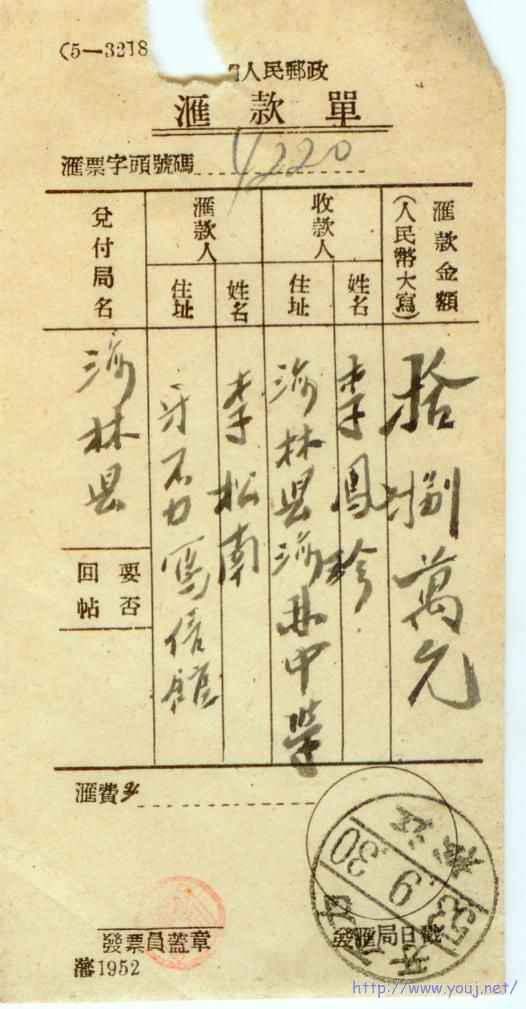 (5—3218
人民郵政
滙款單
滙票字頭號碼 1/220
滙款金額
(人民幣大寫)
拾捌萬元
收款人
姓名
李鳳珍
住址
海林县海林中学
滙款人
姓名
李松南
住址
牙不力寫信館
兌付局名
海林县
要否
回帖
滙費
53.9.30
發票員蓋章
發滙局日戳
藩1952
http://www.youj.net/